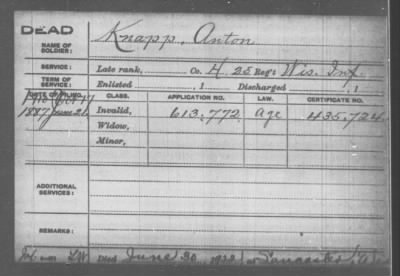 DEAD
NAME OF SOLDIER: Knapp, Anton
SERVICE: Late rank, Co. H, 25 Reg't Wis. Inf.
TERM OF SERVICE: Enlisted , 1 Discharged , 1
DATE OF FILING. CLASS. APPLICATION NO. LAW. CERTIFICATE NO.
1887 June 21 Invalid, 613.772 Age 435.724
Widow,
Minor,
ADDITIONAL SERVICES:
REMARKS:
Died June 30, at